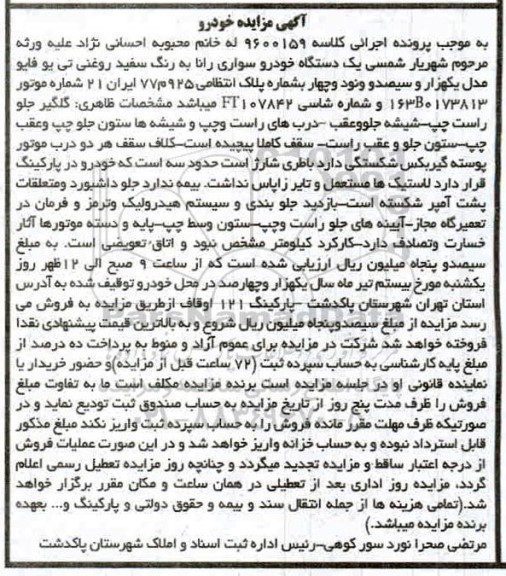 آگهی مزایده خودرو
به موجب پرونده اجرائی کلاسه ۹۶۰۰۱۵۹ له خانم محبوبه احسانی نژاد علیه ورثه
مرحوم شهریار شمسی یک دستگاه خودرو سواری رانا به رنگ سفید روغنی تی یو فایو
مدل یکهزار و سیصدو نود وچهار بشماره پلاک انتظامی۹۲۵م۷۷ ایران ۲۱ شماره موتور
۱۶۳B۰۱۷۳۸۱۳ و شماره شاسی FT۱۰۷۸۴۲ میباشد مشخصات ظاهری: گلگیر جلو
راست چپ-شیشه جلووعقب -درب های راست وچپ و شیشه ها ستون جلو چپ وعقب
چپ-ستون جلو و عقب راست- سقف کاملا پیچیده است-کلاف سقف هر دو درب موتور
پوسته گیربکس شکستگی دارد باطری شارژ است حدود سه است که خودرو در پارکینگ
قرار دارد لاستیک ها مستعمل و تایر زاپاس نداشت. بیمه ندارد جلو داشبورد ومتعلقات
پشت آمپر شکسته است-بازدید جلو بندی و سیستم هیدرولیک وترمز و فرمان در
تعمیرگاه مجاز-آیینه های جلو راست وچپ-ستون وسط چپ-پایه و دسته موتورها آثار
خسارت وتصادف دارد-کارکرد کیلومتر مشخص نبود و اتاق تعویضی است. به مبلغ
سیصدو پنجاه میلیون ریال ارزیابی شده است که از ساعت ۹ صبح الی ۱۲ظهر روز
یکشنبه مورخ بیستم تیر ماه سال یکهزار وچهارصد در محل خودرو توقیف شده به آدرس
استان تهران شهرستان پاکدشت -پارکینگ ۱۲۱ اوقاف ازطریق مزایده به فروش می
رسد مزایده از مبلغ سیصدوپنجاه میلیون ریال شروع و به بالاترین قیمت پیشنهادی نقدا
فروخته خواهد شد شرکت در مزایده برای عموم آزاد و منوط به پرداخت ده درصد از
مبلغ پایه کارشناسی به حساب سپرده ثبت (۷۲ ساعت قبل از مزایده)و حضور خریدار یا
نماینده قانونی او در جلسه مزایده است برنده مزایده مکلف است ما به تفاوت مبلغ
فروش را ظرف مدت پنج روز از تاریخ مزایده به حساب صندوق ثبت تودیع نماید و در
صورتیکه ظرف مهلت مقرر مانده فروش را به حساب سپرده ثبت واریز نکند مبلغ مذکور
قابل استرداد نبوده و به حساب خزانه واریز خواهد شد و در این صورت عملیات فروش
از درجه اعتبار ساقط و مزایده تجدید میگردد و چنانچه روز مزایده تعطیل رسمی اعلام
گردد، مزایده روز اداری بعد از تعطیلی در همان ساعت و مکان مقرر برگزار خواهد
شد.(تمامی هزینه ها از جمله انتقال سند و بیمه و حقوق دولتی و پارکینگ و... بعهده
برنده مزایده میباشد.)
مرتضی صحرا نورد سور کوهی-رئیس اداره ثبت اسناد و املاک شهرستان پاکدشت